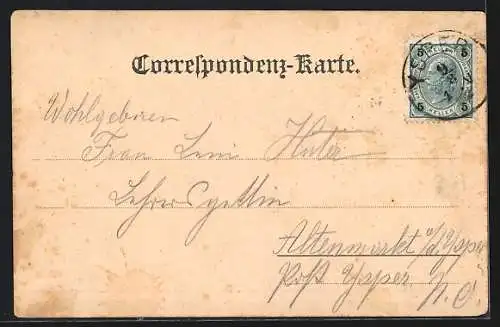 Correspondenz-Karte.
Wohlgeboren
Frau Leni Huter
Lehrersgattin
Altenmarkt a/d Ysper
Post Ysper. N. Ö.
5 5
5 5